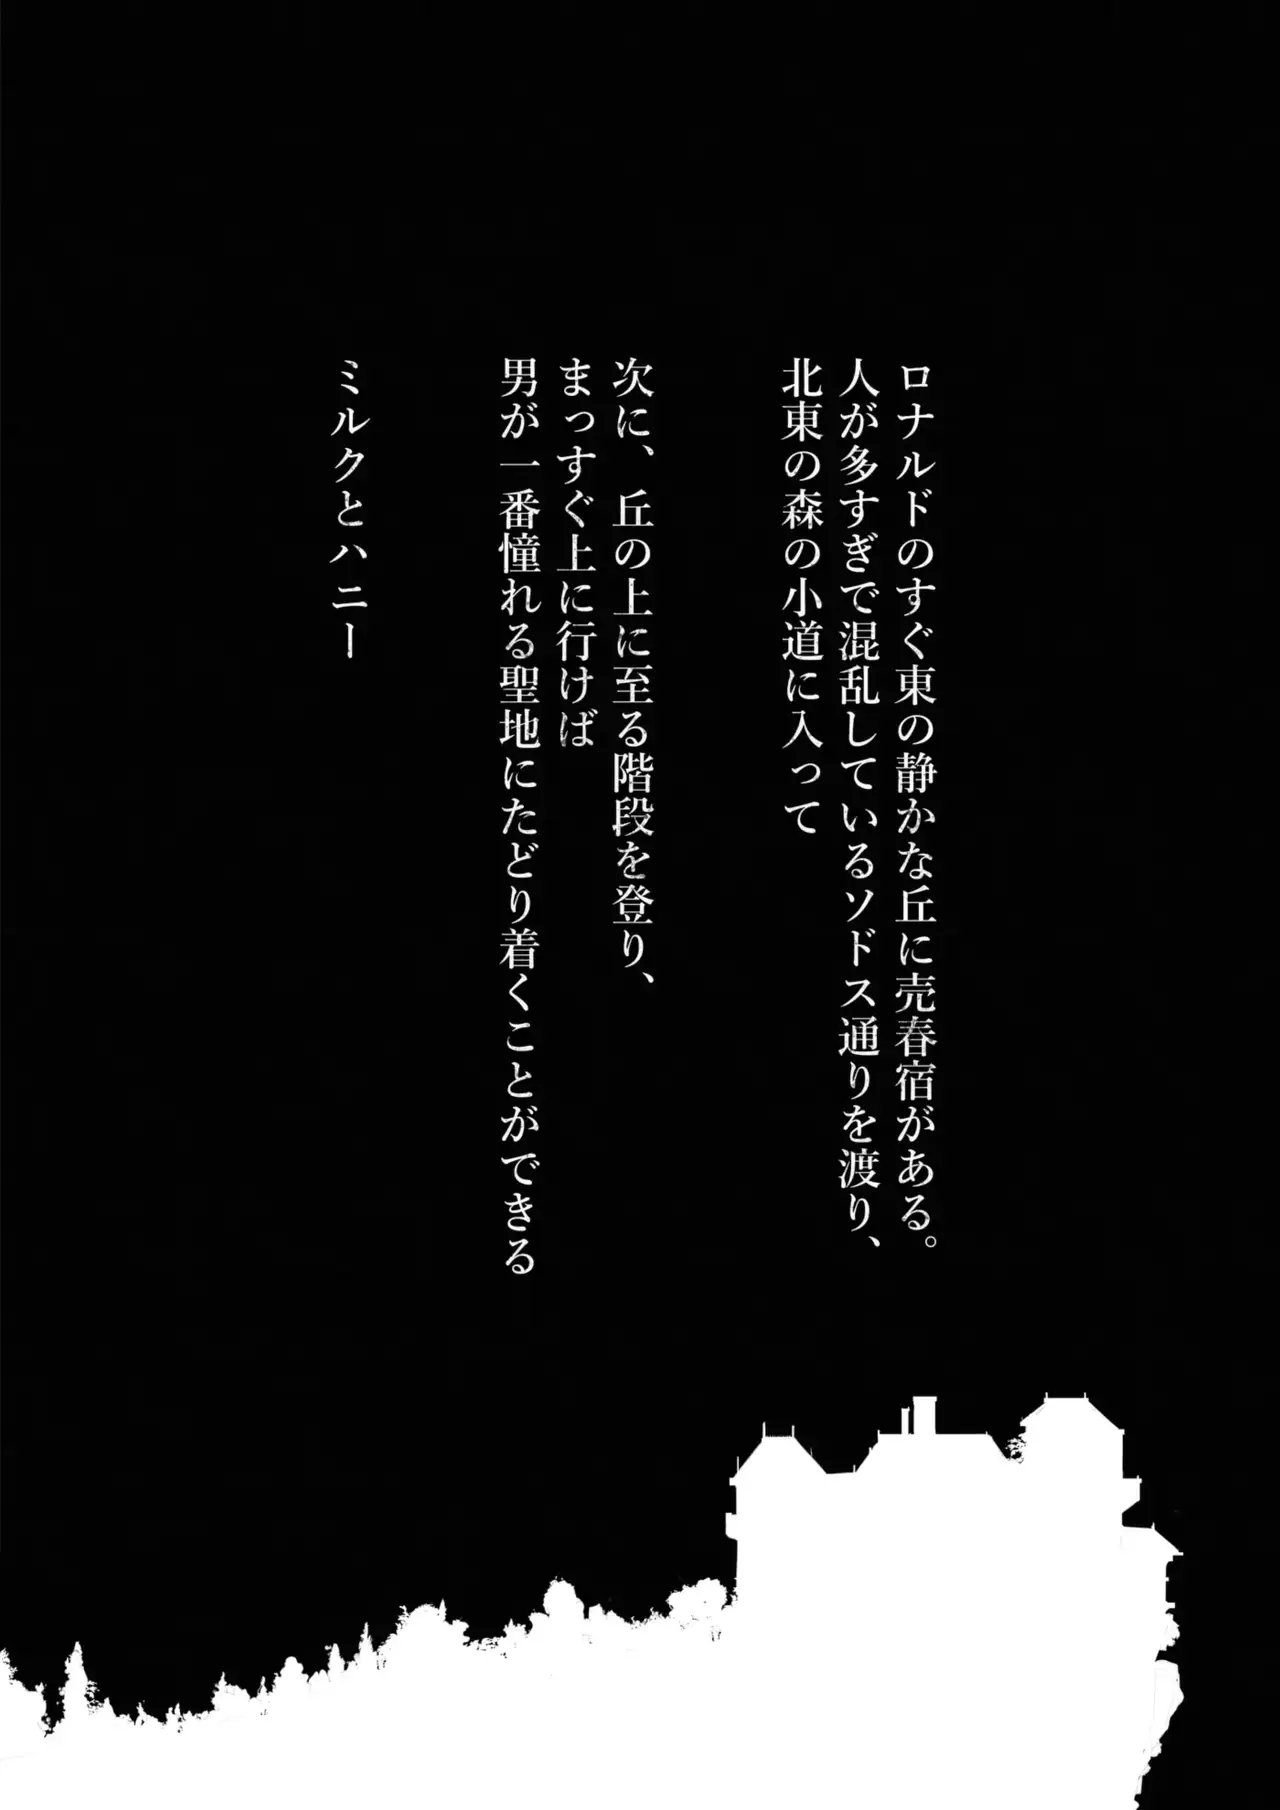 ロナルドのすぐ東の静かな丘に売春宿がある。
人が多すぎで混乱しているソドス通りを渡り、
北東の森の小道に入って
次に、丘の上に至る階段を登り、
まっすぐ上に行けば
男が一番憧れる聖地にたどり着くことができる
ミルクとハニー